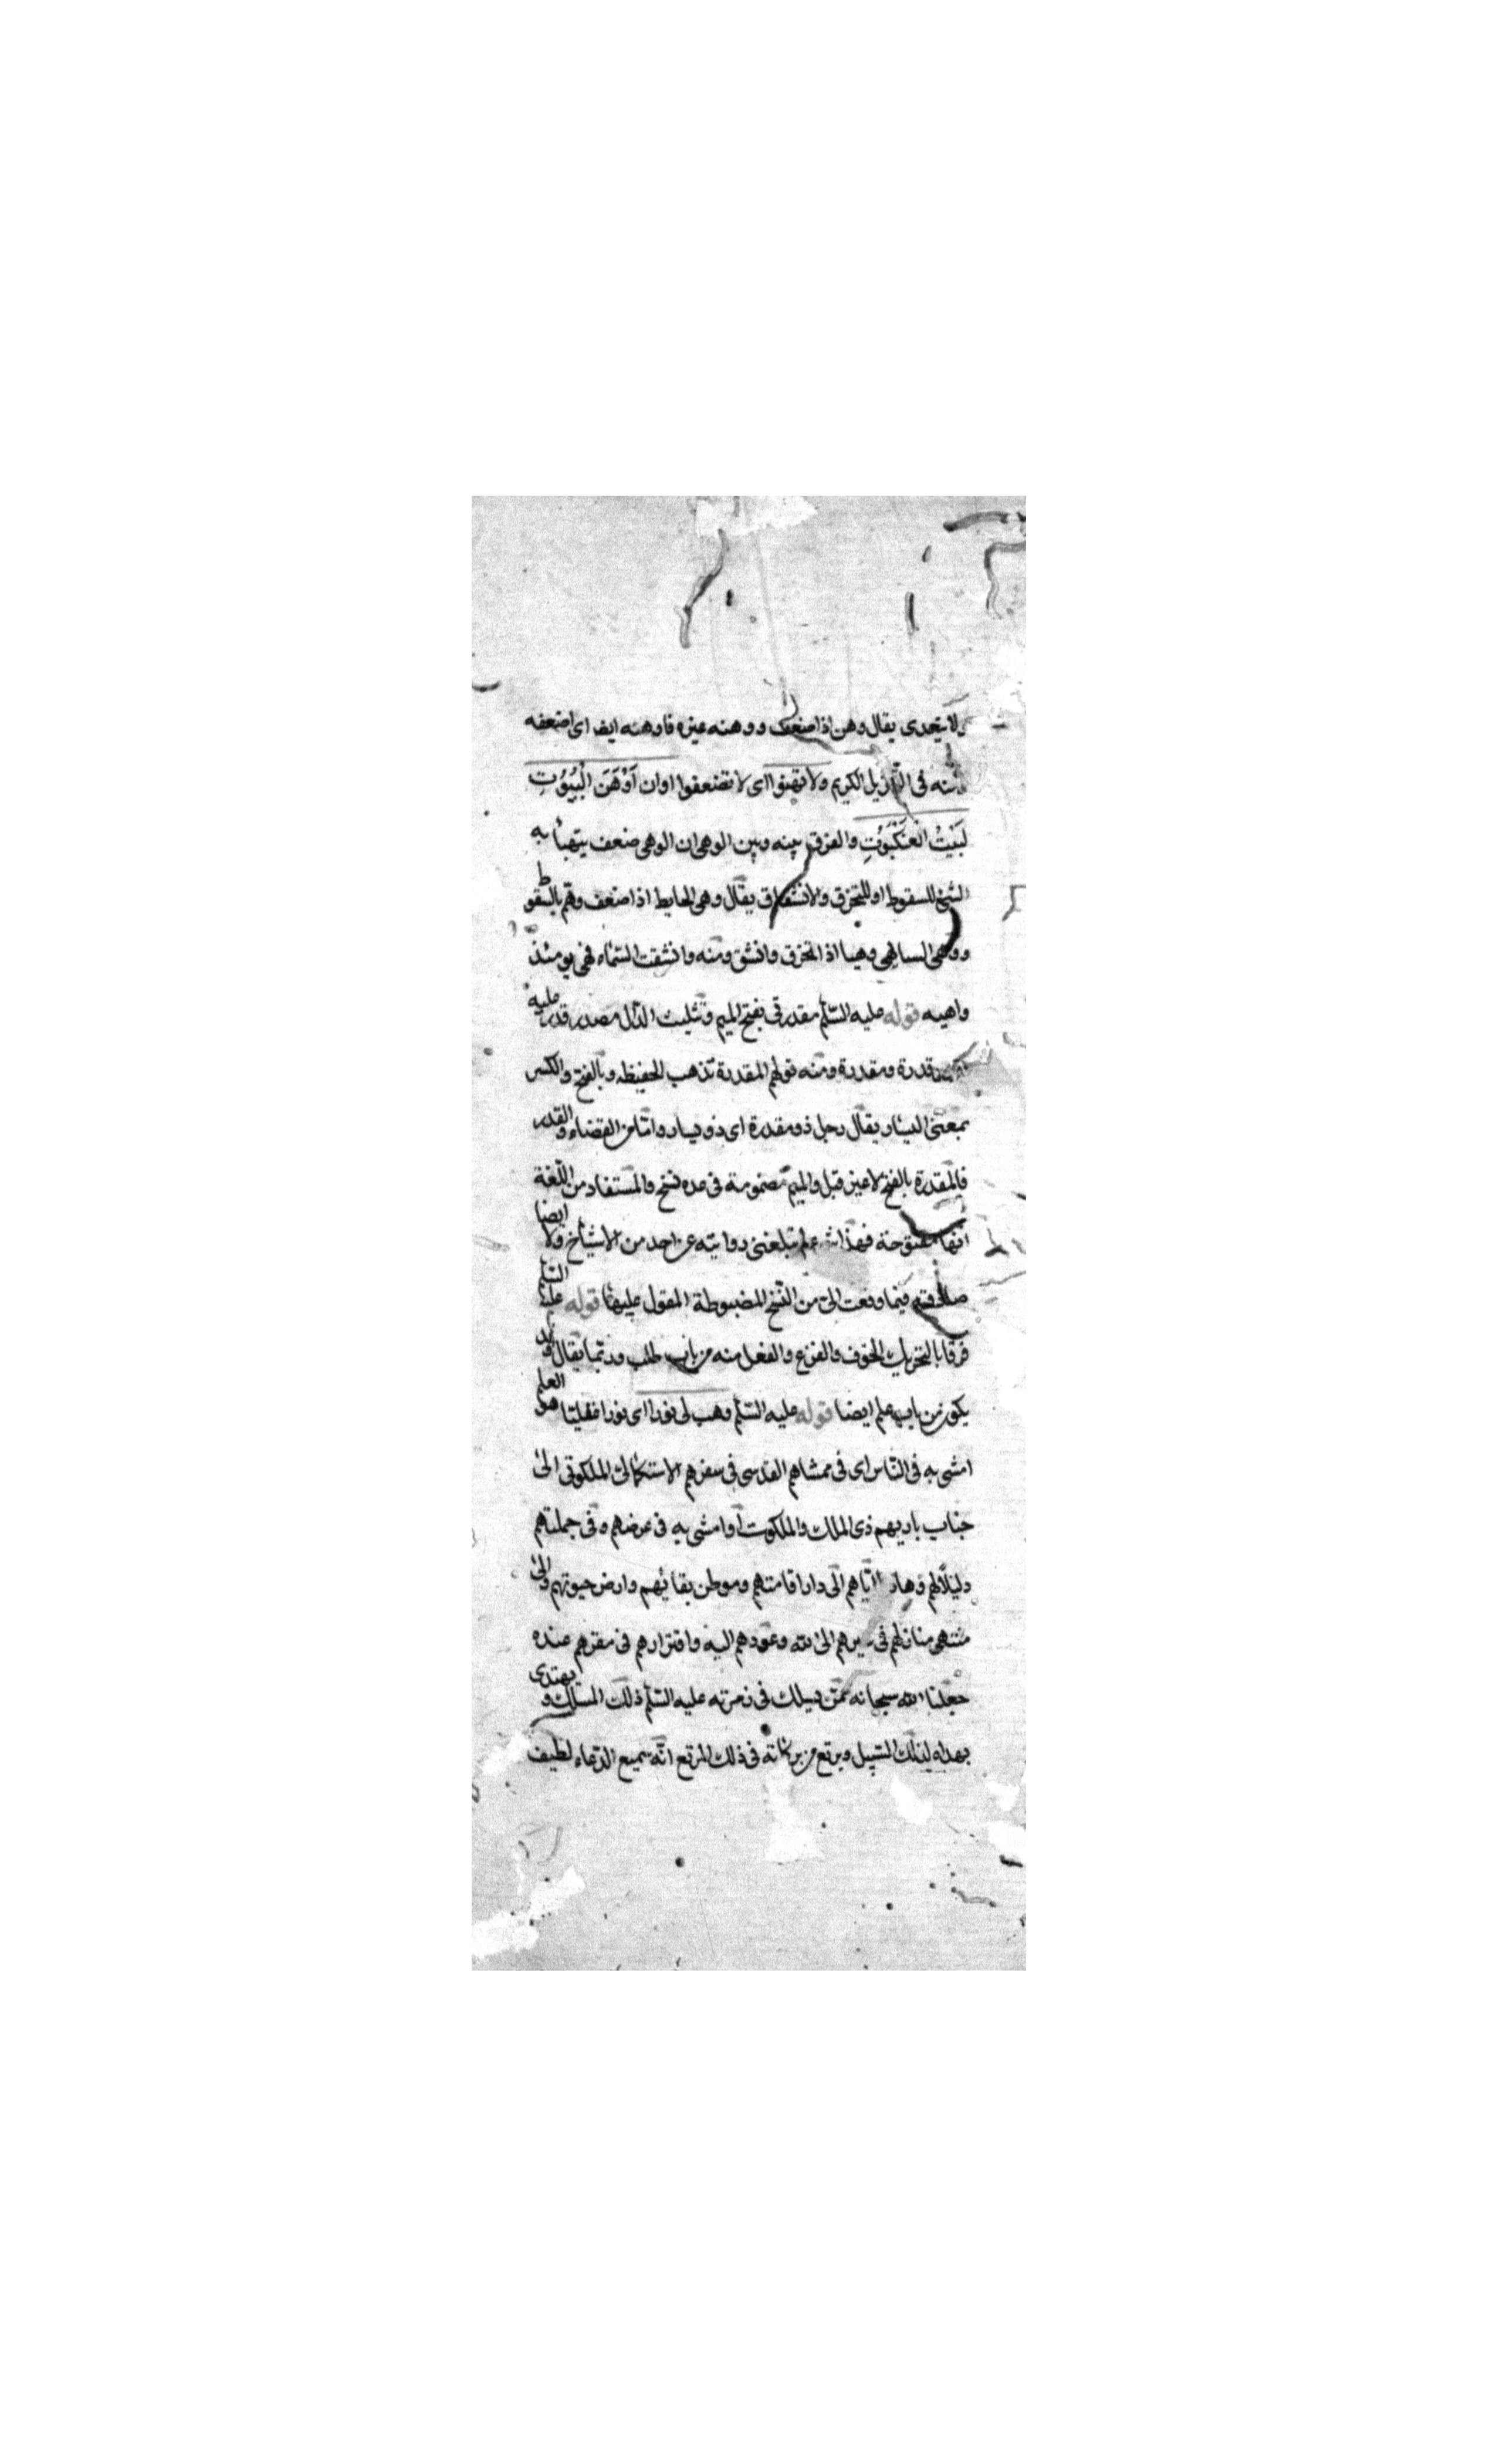 ولا يتعدى يقال وهن اذا ضعف ووهنه غيره فاوهنه ايض اى اضعفه
ومنه فى التنزيل الكريم ولا تهنوا اى لا تضعفوا وان اَوْهَنَ الْبُيُوتِ
لَبَيْتُ الْعَنْكَبُوتِ والفرق بينه وبين الوهى ان الوهى ضعف يتهيأ به
الشئ للسقوط او للتخرق والانشقاق يقال وهى الحايط اذا ضعف وهمّ بالسقوط
ووهى السا يهى وهيا اذا انخرق وانشق ومنه وانشقت السّماء فهى يومئذ
واهيه قوله عليه السّلم مقدرتى بفتح الميم وتثليث الدّال مصدر قدر عليه
قدرة ومقدرة ومنه قولهم المقدرة تذهب الحفيظه وبالفتح والكسر
بمعنى اليسار يقال رجل ذو مقدرة اى ذو يسار وامّا من القضاء والقدر
فالمقدرة بالفتح لا غير قيل والميم مضمومة فى عده نسخ والمستفاد من اللّغة
انها مفتوحة فهذا لم تبلغنى روايته عن احد من الاشياخ ولا ايضا
صادفته فيما وقعت الىّ من النّسخ المضبوطة المعول عليها قوله عليه السّلم
فرقا بالتحريك الخوف والفزع والفعل منه من باب طلب وربّما يقال وقد
يكون من باب علم ايضا قوله عليه السّلم وهب لى نورا اى نورا عقليّا هو العلم
امشى به فى النّاس اى فى ممشاهم القدسى فى سفرهم الاستكمالىّ الملكوتى الىٰ
جناب باريهم ذى الملك والملكوت او امشى به فى عرضهم وفى جملتهم
دليلاً لهم وهاديا ايّاهم الى دار اقامتهم وموطن بقائهم وارض حيوتهم والىٰ
منتهى منازلهم فى سيرهم الىٰ الله وعودهم اليه واقترارهم فى مقرهم عنده
جعلنا الله سبحانه ممّن يسلك فى زمرته عليه السّلم ذلك المسلك ويهتدى
بهداه لذلك السّبيل ويرتع من بركاته فى ذلك المرتع انّه سميع الدّعاء لطيف